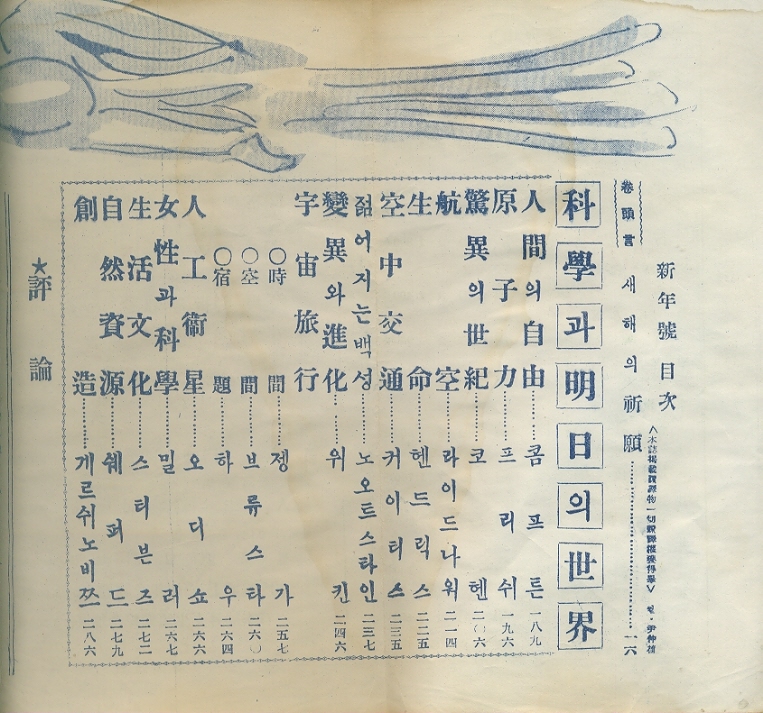 新年號 目次
卷頭言
새해의 祈願……一六
科學과 明日의 世界
人間의 自由……콤프튼 一八九
原子力……프리쉬 一九六
驚異의 世紀……코헨 二〇六
航空……라이드나워 二一四
生命……헨드릭스 二二五
空中交通……커이터스 二三五
젊어지는 백성……노오트스타인 二三七
變異와 進化……위킨 二四六
宇宙旅行
○時間……젱가 二五七
○空間……브류스타 二六〇
○宿題……하우 二六四
人工衞星……오디쇼 二六六
女性과 科學……밀러 二六七
生活文化……스티븐즈 二七二
自然資源……쉐퍼드 二七九
創造……게르쉬노비쯔 二八六
★評論